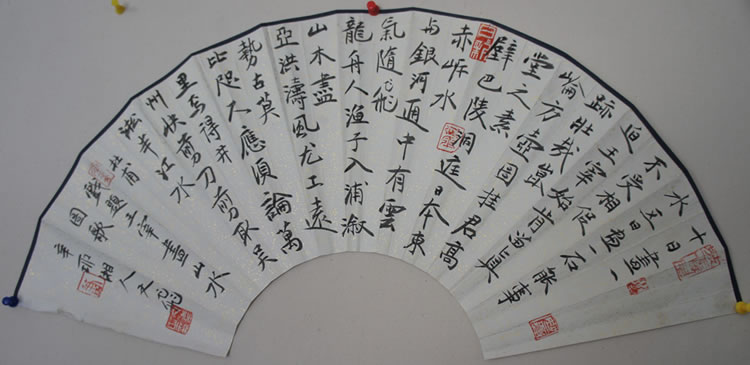 十日畫一
水五日畫一石能事
不受相促
迫王宰始肯留真
跡壯哉崑
崙方壺圖挂君高
堂之素
壁巴陵洞庭日本東
赤岍水
与銀河通中有雲
氣隨飛
龍舟人漁子入浦漵
山木盡
亞洪濤風尤工遠
勢古莫
比咫尺應須論萬
里焉得并
州快剪刀剪取吴
淞半江水
杜甫戲題王宰畫山水
圖歌
辛卯湘人